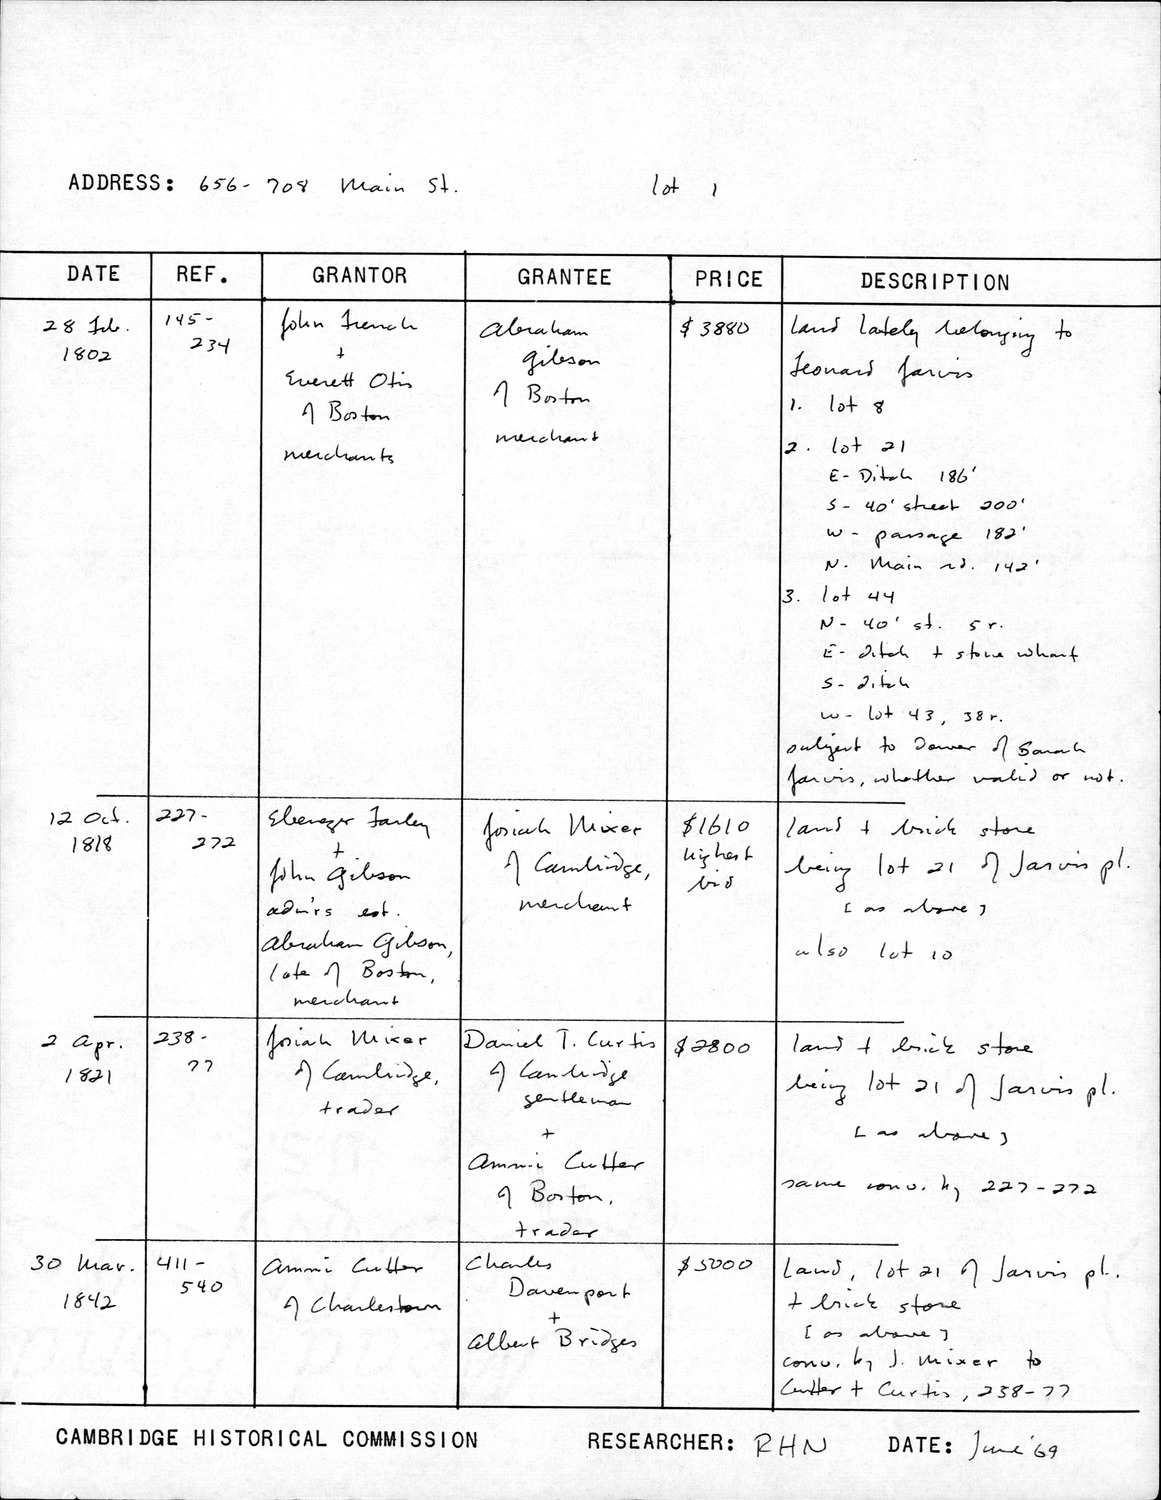 ADDRESS: 656-708 Main St. lot 1
DATE REF. GRANTOR GRANTEE PRICE DESCRIPTION
28 Feb.
1802
145-
234
John French
+
Everett Otis
of Boston
merchants
Abraham
Gibson
of Boston
merchant
$3880
land lately belonging to
Leonard Jarvis
1. lot 8
2. lot 21
E- Ditch 186'
S- 40' street 200'
W- passage 182'
N. Main rd. 142'
3. lot 44
N- 40' st. 5 r.
E- ditch + stone wharf
S- ditch
W- lot 43, 38 r.
subject to Dower of Sarah
Jarvis, whether valid or not.
12 Oct.
1818
227-
272
Ebenezer Farley
+
John Gibson
adm'rs est.
Abraham Gibson,
late of Boston,
merchant
Josiah Mixer
of Cambridge,
merchant
$1610
highest
bid
land + brick store
being lot 21 of Jarvis pl.
[as above]
also lot 10
2 Apr.
1821
238-
77
Josiah Mixer
of Cambridge,
trader
Daniel T. Curtis
of Cambridge
gentleman
+
Ammi Cutter
of Boston,
trader
$2800
land + brick store
being lot 21 of Jarvis pl.
[as above]
same conv. by 227-272
30 Mar.
1842
411-
540
Ammi Cutter
of Charlestown
Charles
Davenport
+
Albert Bridges
$5000
Land, lot 21 of Jarvis pl.
+ brick store
[as above]
conv. by J. Mixer to
Cutter + Curtis, 238-77
CAMBRIDGE HISTORICAL COMMISSION RESEARCHER: RHN DATE: June '69